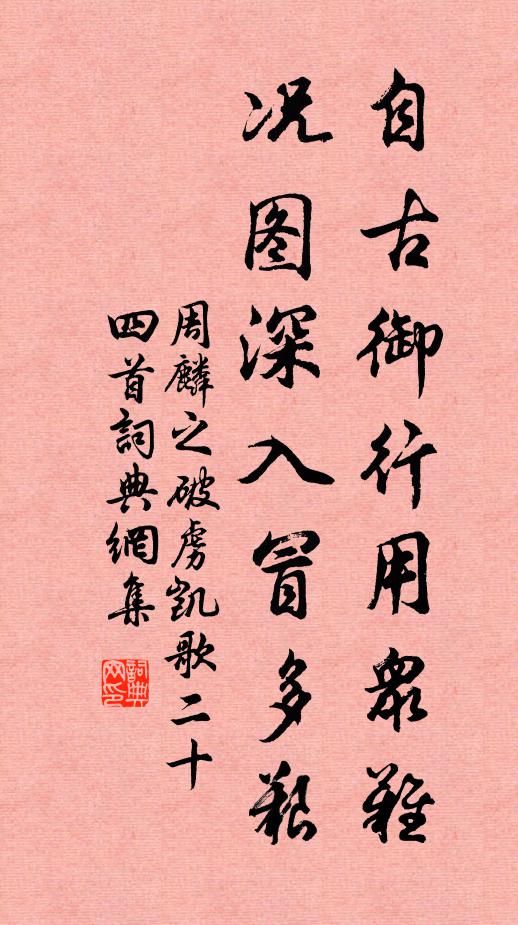 自古御行用衆難
况图深入冒多艱
周麟之破虜凱歌二十
四首詞典網集
詞典网印